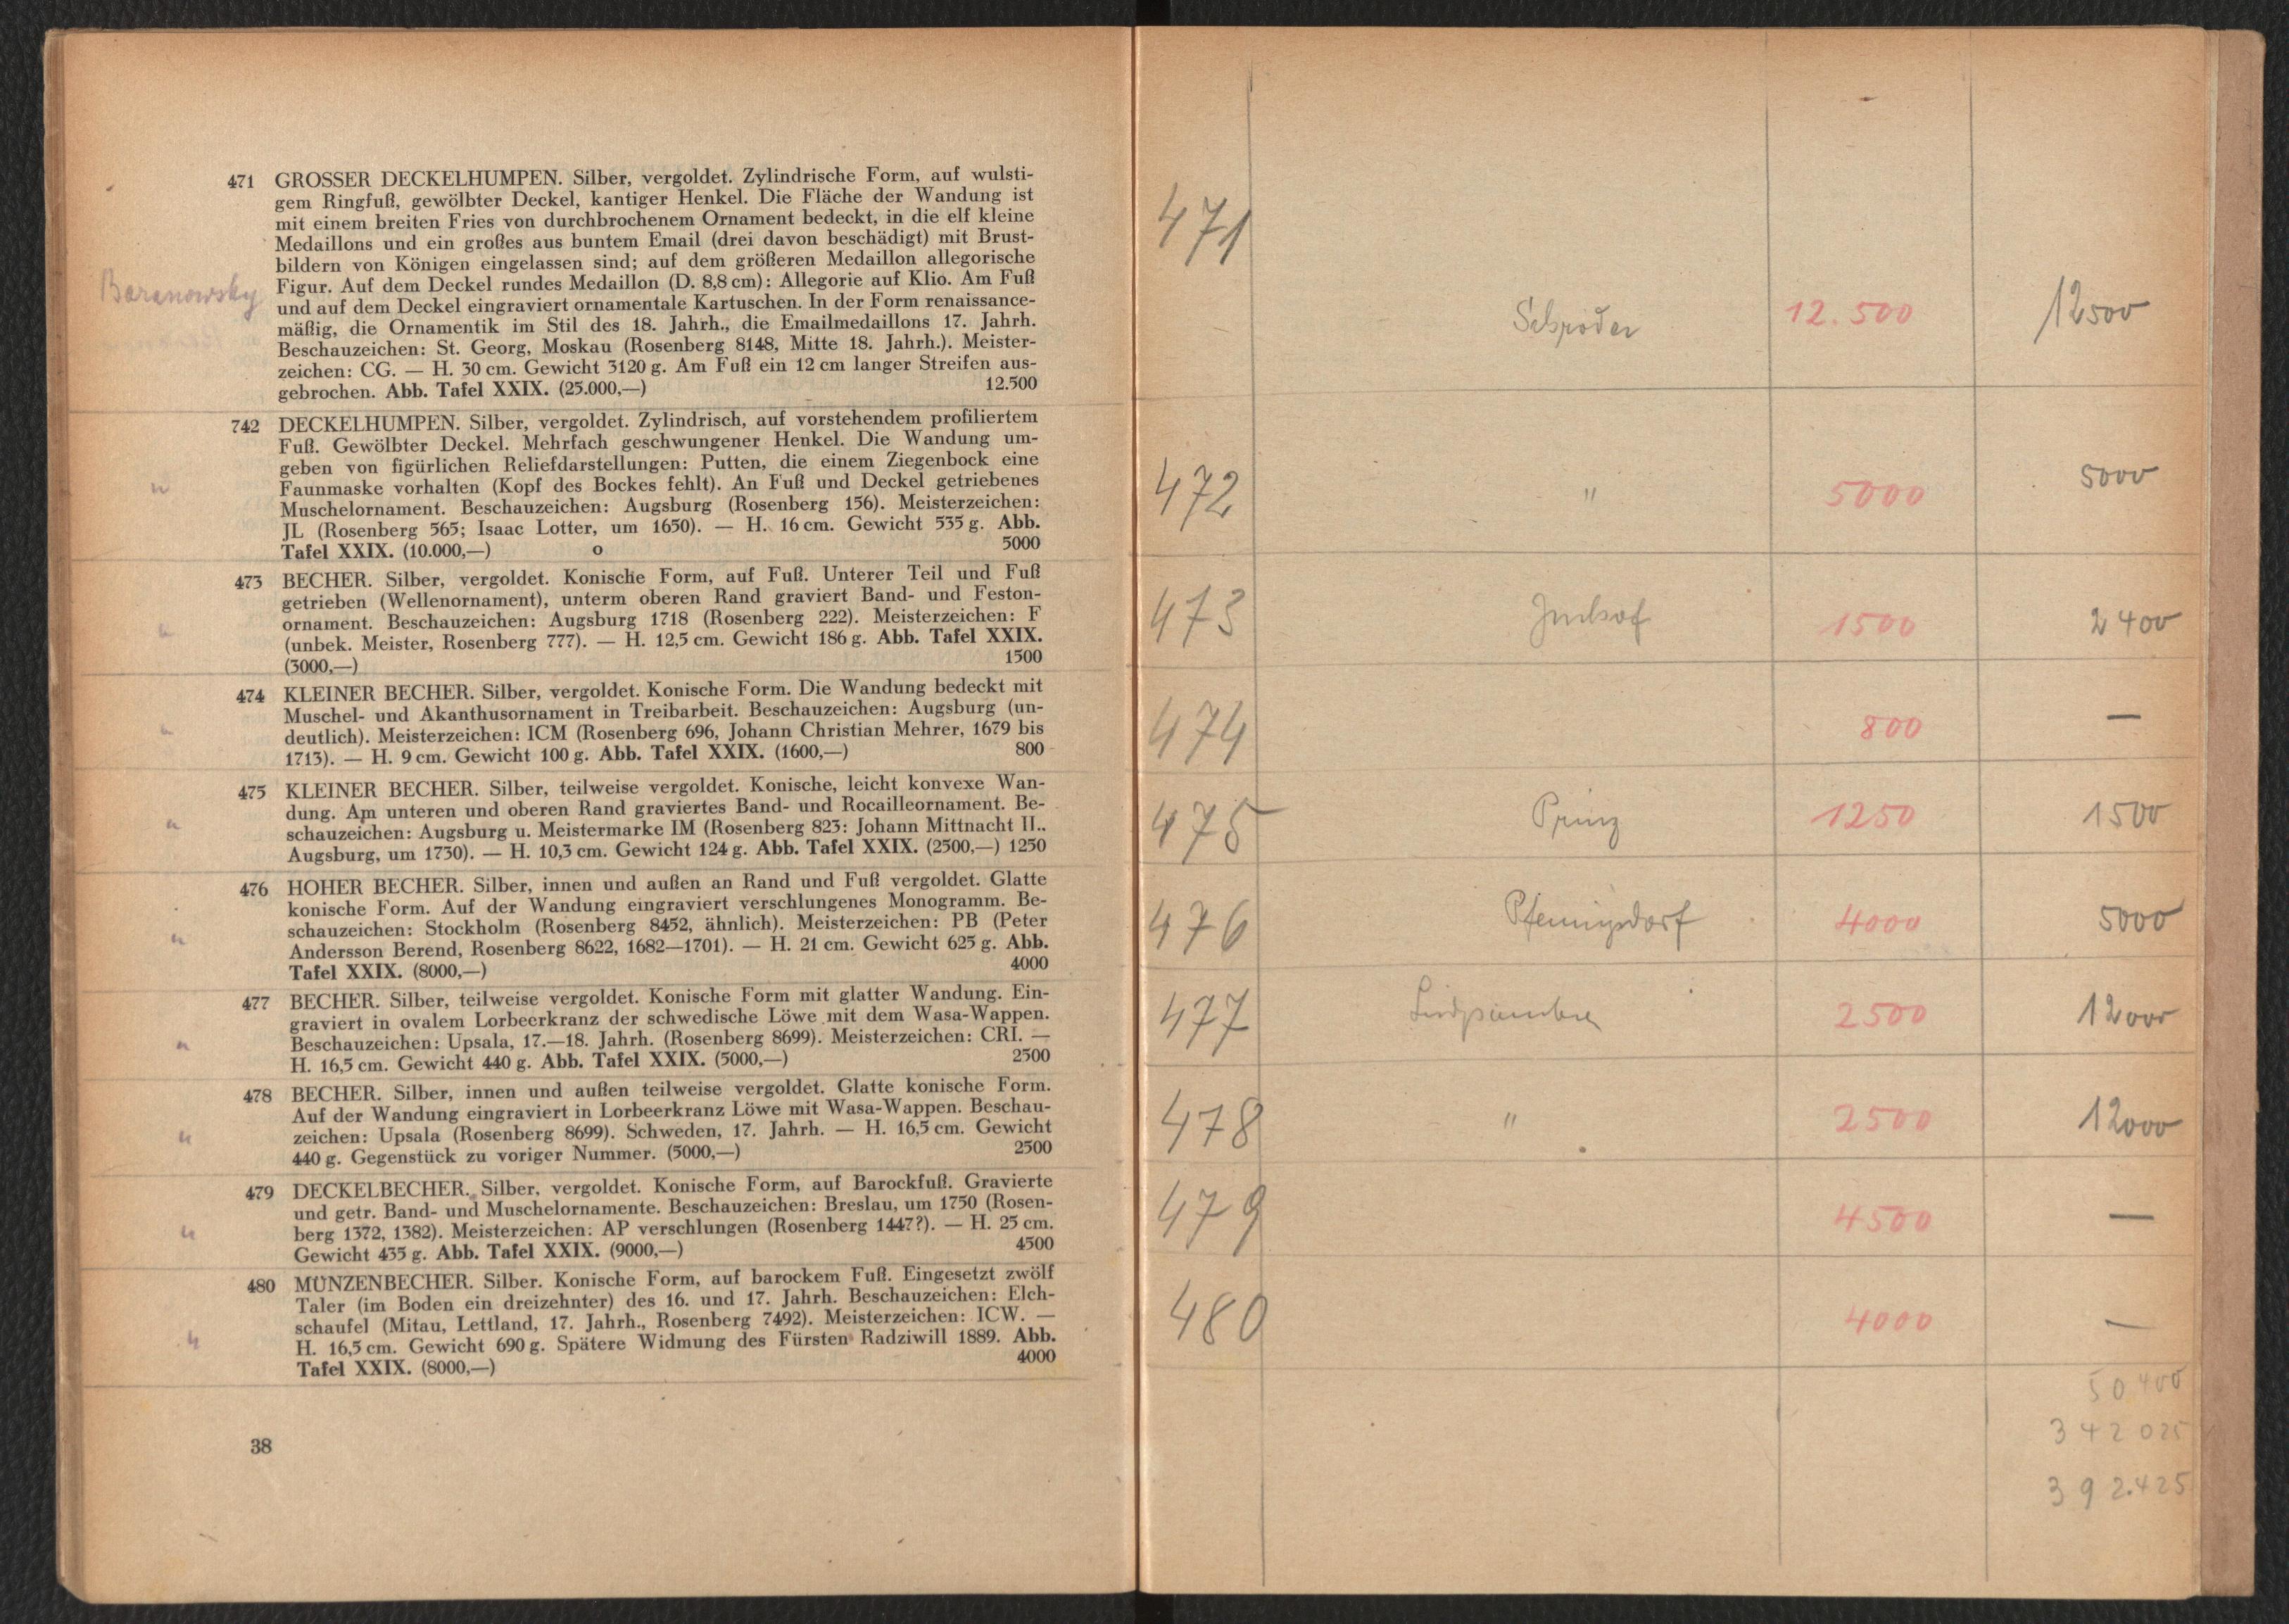 471 GROSSER DECKELHUMPEN. Silber, vergoldet. Zylindrische Form, auf wulsti-
gem Ringfuß, gewölbter Deckel, kantiger Henkel. Die Fläche der Wandung ist
mit einem breiten Fries von durchbrochenem Ornament bedeckt, in die elf kleine
Medaillons und ein großes aus buntem Email (drei davon beschädigt) mit Brust-
bildern von Königen eingelassen sind; auf dem größeren Medaillon allegorische
Baranowsky Figur. Auf dem Deckel rundes Medaillon (D. 8,8 cm): Allegorie auf Klio. Am Fuß
und auf dem Deckel eingraviert ornamentale Kartuschen. In der Form renaissance-
mäßig, die Ornamentik im Stil des 18. Jahrh., die Emailmedaillons 17. Jahrh.
Beschauzeichen: St. Georg, Moskau (Rosenberg 8148, Mitte 18. Jahrh.). Meister-
zeichen: CG. — H. 30 cm. Gewicht 3120 g. Am Fuß ein 12 cm langer Streifen aus-
gebrochen. Abb. Tafel XXIX. (25.000,—) 12.500
742 DECKELHUMPEN. Silber, vergoldet. Zylindrisch, auf vorstehendem profiliertem
Fuß. Gewölbter Deckel. Mehrfach geschwungener Henkel. Die Wandung um-
geben von figürlichen Reliefdarstellungen: Putten, die einem Ziegenbock eine
" Faunmaske vorhalten (Kopf des Bockes fehlt). An Fuß und Deckel getriebenes
Muschelornament. Beschauzeichen: Augsburg (Rosenberg 156). Meisterzeichen:
JL (Rosenberg 565; Isaac Lotter, um 1650). — H. 16 cm. Gewicht 535 g. Abb.
Tafel XXIX. (10.000,—) o 5000
473 BECHER. Silber, vergoldet. Konische Form, auf Fuß. Unterer Teil und Fuß
getrieben (Wellenornament), unterm oberen Rand graviert Band- und Feston-
" ornament. Beschauzeichen: Augsburg 1718 (Rosenberg 222). Meisterzeichen: F
(unbek. Meister, Rosenberg 777). — H. 12,5 cm. Gewicht 186 g. Abb. Tafel XXIX.
(3000,—) 1500
474 KLEINER BECHER. Silber, vergoldet. Konische Form. Die Wandung bedeckt mit
Muschel- und Akanthusornament in Treibarbeit. Beschauzeichen: Augsburg (un-
" deutlich). Meisterzeichen: ICM (Rosenberg 696, Johann Christian Mehrer, 1679 bis
1713). — H. 9 cm. Gewicht 100 g. Abb. Tafel XXIX. (1600,—) 800
475 KLEINER BECHER. Silber, teilweise vergoldet. Konische, leicht konvexe Wan-
dung. Am unteren und oberen Rand graviertes Band- und Rocailleornament. Be-
" schauzeichen: Augsburg u. Meistermarke IM (Rosenberg 823: Johann Mittnacht II..
Augsburg, um 1730). — H. 10,3 cm. Gewicht 124 g. Abb. Tafel XXIX. (2500,—) 1250
476 HOHER BECHER. Silber, innen und außen an Rand und Fuß vergoldet. Glatte
konische Form. Auf der Wandung eingraviert verschlungenes Monogramm. Be-
" schauzeichen: Stockholm (Rosenberg 8452, ähnlich). Meisterzeichen: PB (Peter
Andersson Berend, Rosenberg 8622, 1682—1701). — H. 21 cm. Gewicht 625 g. Abb.
Tafel XXIX. (8000,—) 4000
477 BECHER. Silber, teilweise vergoldet. Konische Form mit glatter Wandung. Ein-
graviert in ovalem Lorbeerkranz der schwedische Löwe mit dem Wasa-Wappen.
" Beschauzeichen: Upsala, 17.—18. Jahrh. (Rosenberg 8699). Meisterzeichen: CRI. —
H. 16,5 cm. Gewicht 440 g. Abb. Tafel XXIX. (5000,—) 2500
478 BECHER. Silber, innen und außen teilweise vergoldet. Glatte konische Form.
Auf der Wandung eingraviert in Lorbeerkranz Löwe mit Wasa-Wappen. Beschau-
" zeichen: Upsala (Rosenberg 8699). Schweden, 17. Jahrh. — H. 16,5 cm. Gewicht
440 g. Gegenstück zu voriger Nummer. (5000,—) 2500
479 DECKELBECHER. Silber, vergoldet. Konische Form, auf Barockfuß. Gravierte
und getr. Band- und Muschelornamente. Beschauzeichen: Breslau, um 1750 (Rosen-
" berg 1372, 1382). Meisterzeichen: AP verschlungen (Rosenberg 1447?). — H. 25 cm.
Gewicht 435 g. Abb. Tafel XXIX. (9000,—) 4500
480 MÜNZENBECHER. Silber. Konische Form, auf barockem Fuß. Eingesetzt zwölf
Taler (im Boden ein dreizehnter) des 16. und 17. Jahrh. Beschauzeichen: Elch-
schaufel (Mitau, Lettland, 17. Jahrh., Rosenberg 7492). Meisterzeichen: ICW. —
" H. 16,5 cm. Gewicht 690 g. Spätere Widmung des Fürsten Radziwill 1889. Abb.
Tafel XXIX. (8000,—) 4000
38
471 Schröder 12.500 12500
472 " 5000 5000
473 Imhof 1500 2400
474 800 —
475 Prinz 1250 1500
476 Pfennigsdorf 4000 5000
477 2500 12000
478 " 2500 12000
479 4500 —
480 4000 —
50 400
342 025
392.425